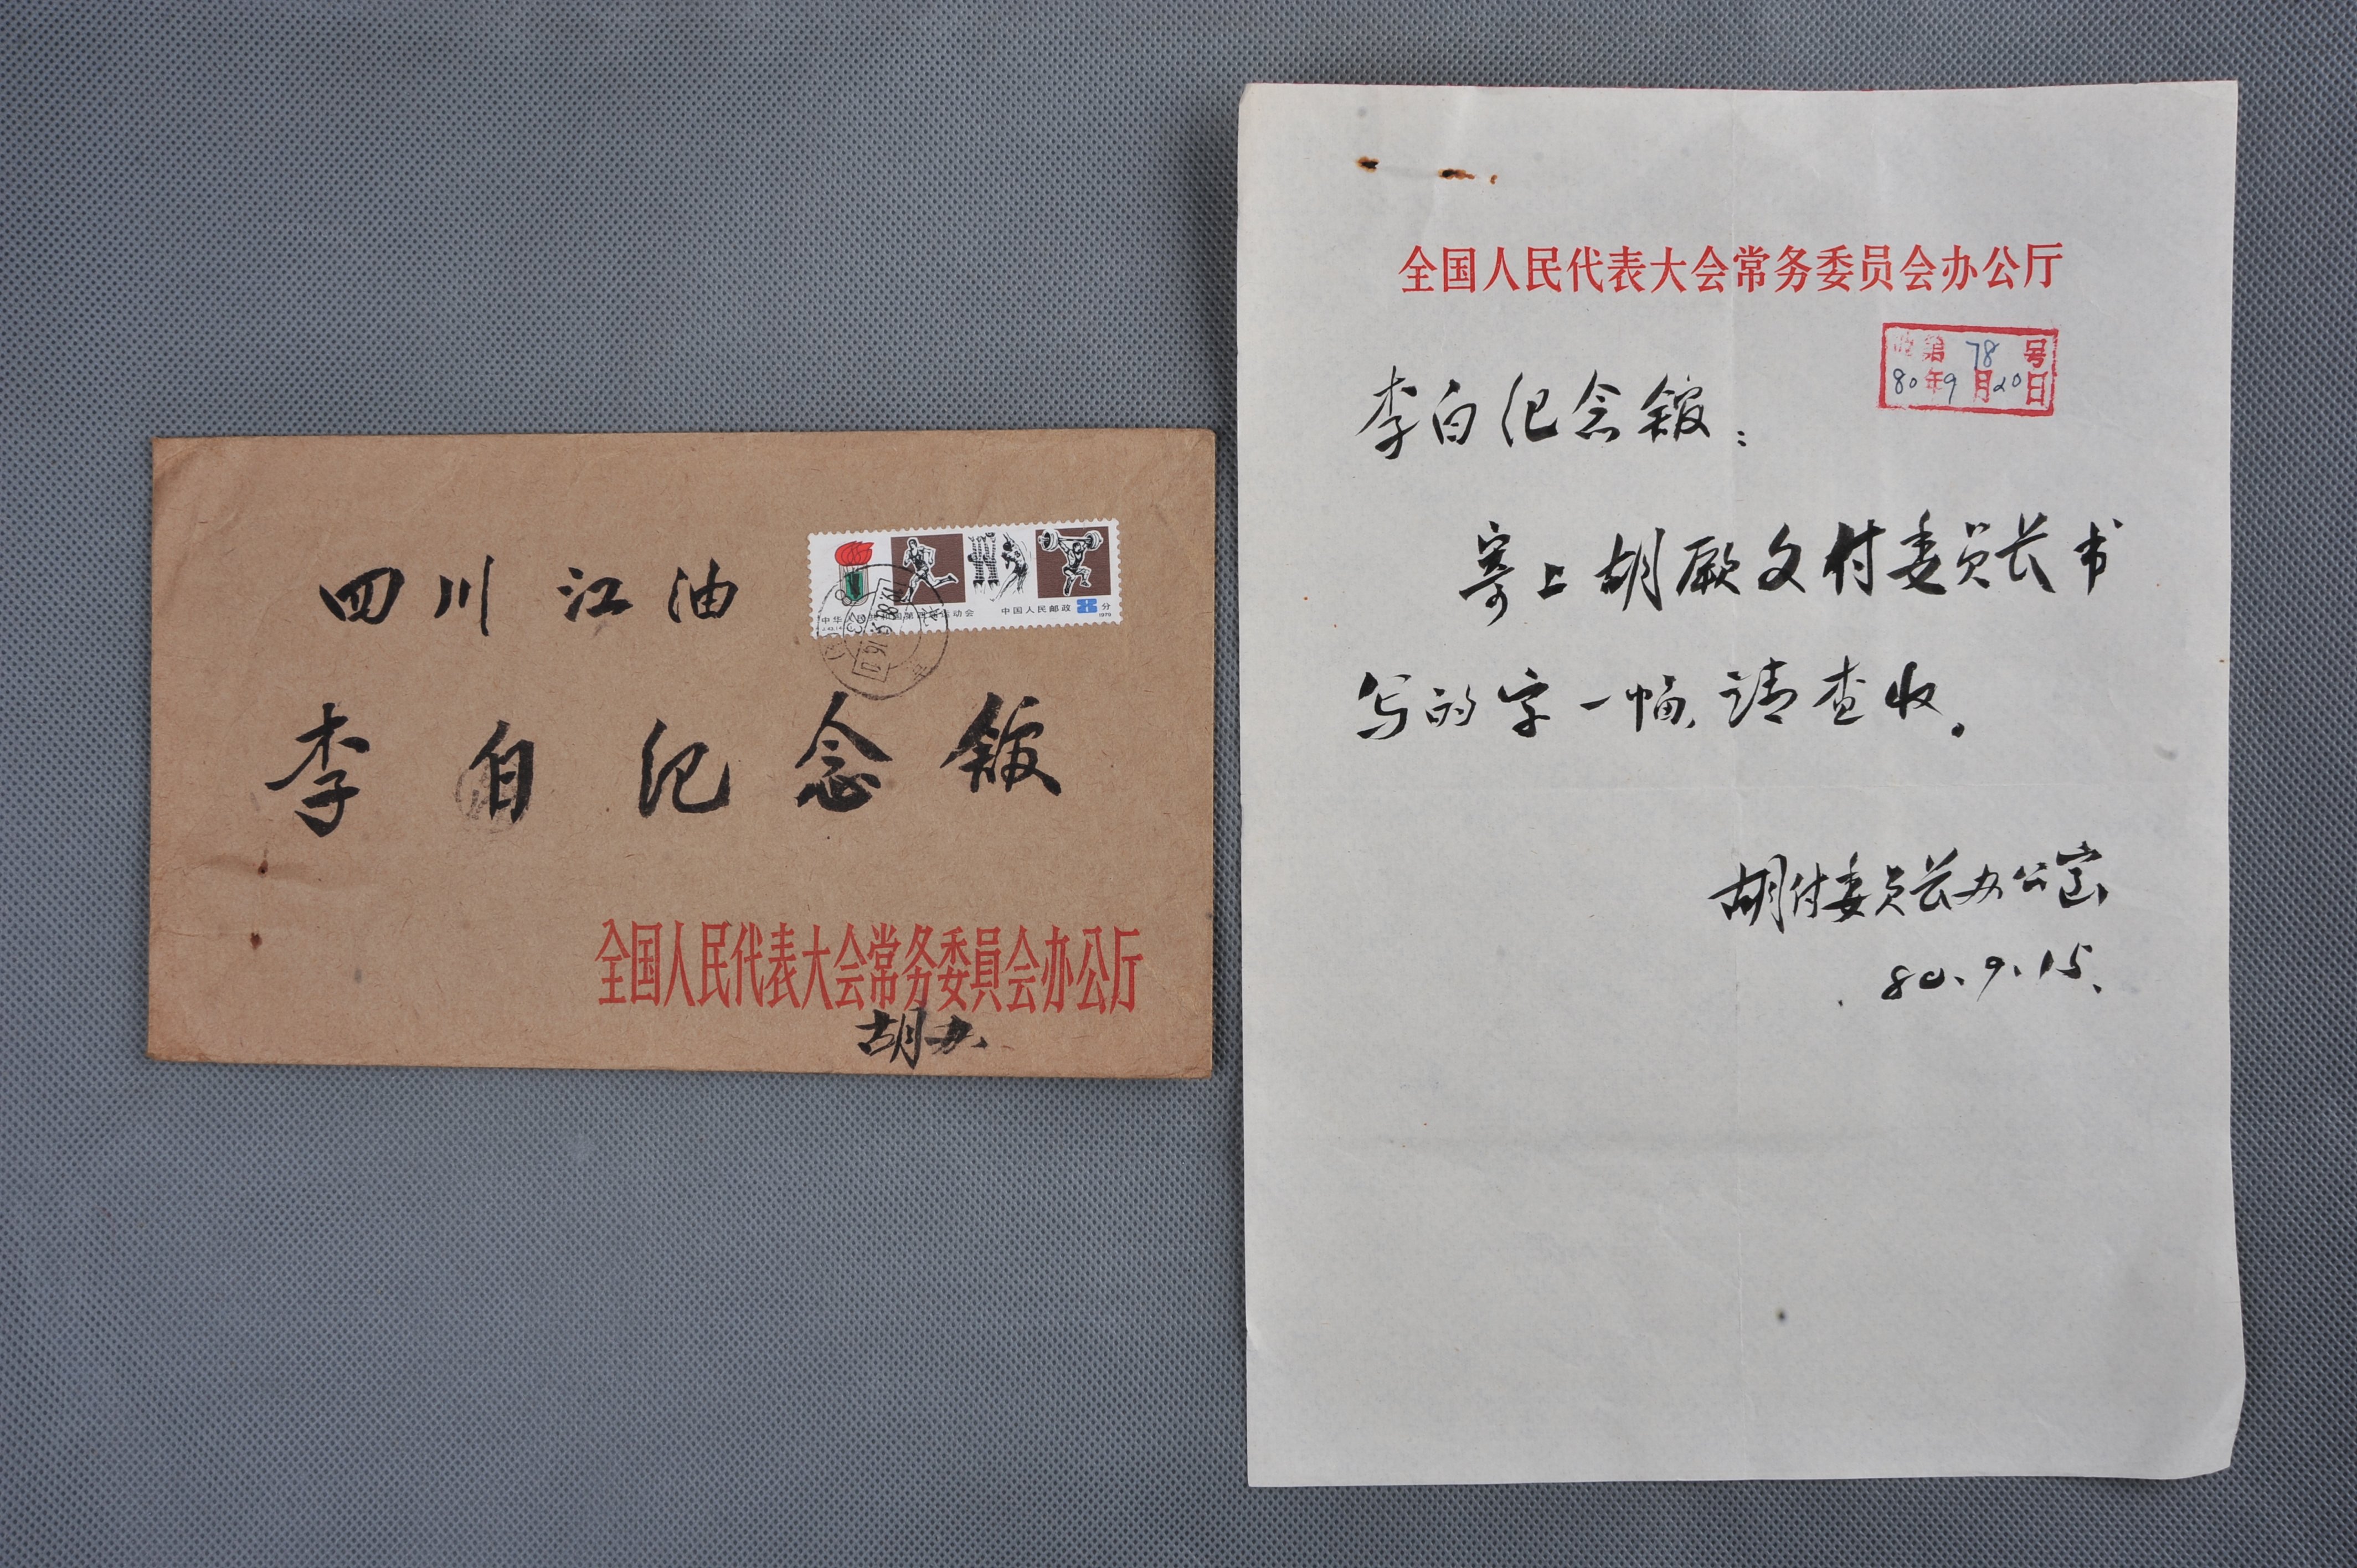 四川江油
中国人民邮政 8分
1979
李白纪念馆
全国人民代表大会常务委員会办公厅
胡办
全国人民代表大会常务委员会办公厅
第78号
80年9月20日
李白纪念馆：
寄上胡厥文付委员长书
写的字一幅，请查收。
胡付委员长办公室
80.9.15.